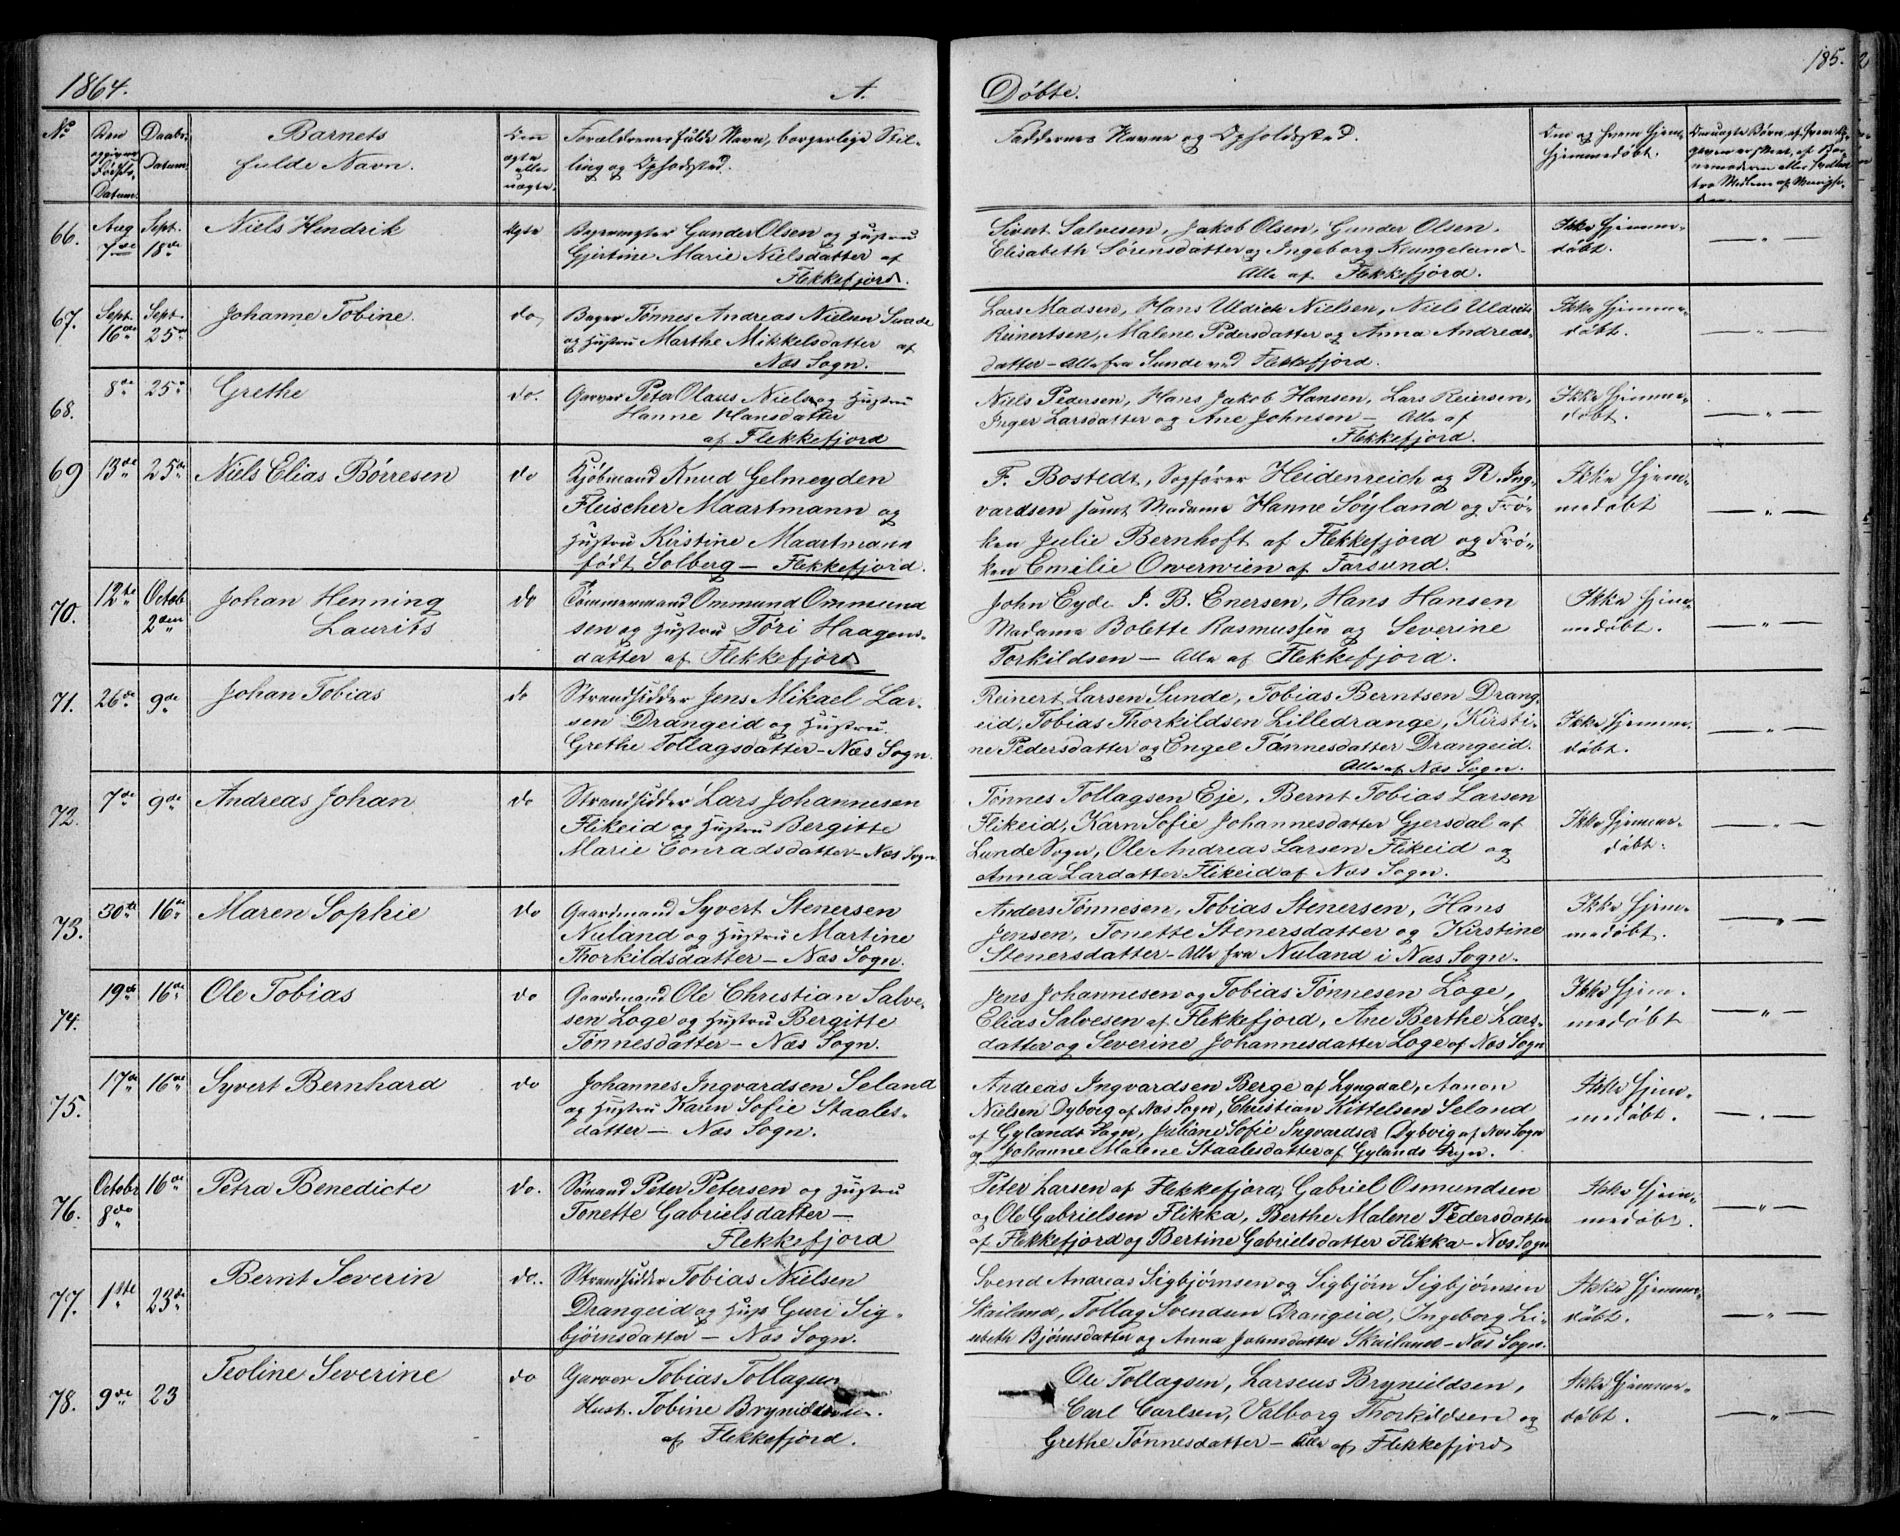 1864.
A.
Døbte.
185.
No
Den opgivne Føsels-Datum.
Daabs-Datum
Barnets fulde Navn.
Om ægte eller uægte.
Forældrenes fulde Navn, borgerlige Stilling og Opholdssted.
Faddernes Navne og Opholdssted.
Om og hvem hjemmedøbt.
66. Aug 7de Sept. 18de Niels Hendrik Ægte
Gunder Olsen og Hustru
Gjertine Marie Nielsdatter af
Flekkefjord.
Sivert Salvesen, Jakob Olsen, Gunder Olsen,
Elisabeth Sørensdatter og Ingeborg Klungeland
Alle af Flekkefjord.
Ikke hjemmedøbt.
67. Sept. 16de Sept. 25de Johanne Tobine. do,
Bager Tønnes Andreas Nielsen Sunde
og Hustru Marthe Mikkelsdatter af
Næs Sogn.
Lars Madsen, Hans Uldrich Nielsen, Niels Uldrik
Reinertsen, Malene Pedersdatter og Anna Andreas-
datter – Alle fra Sunde ved Flekkefjord.
Ikke hjemmedøbt.
68. 8de 25de Grethe do.
Garver Peter Olaus Niels og Hustru
Hanne Hansdatter
af Flekkefjord
Niels Pedersen, Hans Jakob Hansen, Lars Reiersen,
Inger Larsdatter og Ane Johnsen – Alle af
Flekkefjord.
Ikke hjemmedøbt.
69 13de 25de Niels Elias Børresen do
Kjøbmand Knud Gelmeyden
Fleischer Maartmann og
Hustru Kirstine Maartmann
født Solberg – Flekkefjord.
F. Bostedt, Sagfører Heidenreich og R. Ing-
vardsen samt Madame Hanne Søyland og Frø-
ken Julie Bernhoft af Flekkefjord og Frø-
ken Emilie Owerwien af Farsund.
Ikke hjemmedøbt
70. 12te Octob 2den Johan Henning
Laurits do
Tømmermand Ommund Ommund
sen og Hustru Tøri Haagens-
datter af Flekkefjord
John Eyde J. B. Enersen, Hans Hansen
Madame Bolette Rasmussen og Severine
Torkildsen – Alle af Flekkefjord.
Ikke hjemmedøbt.
71. 26de 9de Johan Tobias do
Strandsidder Jens Mikael Lar-
sen Drangeid og Hustru
Grethe Tollagsdatter – Næs Sogn.
Reinert Larsen Sunde, Tobias Berntsen Drang-
eid, Tobias Thorkildsen Lilledrange, Kirsti-
ne Pedersdatter og Engel Tønnesdatter Drangeid.
Alle af Næs Sogn.
Ikke hjemmedøbt.
72. 7de 9de Andreas Johan do
Strandsidder Lars Johannesen
Flikeid og Hustru Bergitte
Marie Conradsdatter – Næs Sogn.
Tønnes Tollagsen Eje, Bernt Tobias Larsen
Flikeid, Karn Sofie Johannesdatter Gjersdal af
Lunde Sogn, Ole Andreas Larsen Flikeid og
Anna Lardatter Flikeid af Næs Sogn.
Ikke hjemmedøbt.
73. 30te 16de Maren Sophie do
Gaardmand Syvert Stenersen
Nuland og Hustru Martine
Thorkildsdatter – Næs Sogn.
Anders Tønnesen, Tobias Stenersen, Hans
Jensen, Tonette Stenersdatter og Kirstine
Stenersdatter – Alle fra Nuland i Næs Sogn.
Ikke hjemmedøbt.
74. 19de 16de Ole Tobias do
Gaardmand Ole Christian Salve-
sen Loge og Hustru Bergitte
Tønnesdatter – Næs Sogn.
Jens Johannesen og Tobias Tønnesen Loge,
Elias Salvesen af Flekkefjord, Ane Berthe Lars-
datter og Severine Johannesdatter Loge af Næs Sogn
Ikke hjemmedøbt
75. 17de 16de Syvert Bernhard do
Johannes Ingvardsen Seland
og Hustru Karen Sofie Staales-
datter – Næs Sogn.
Andreas Ingvardsen Berge af Lyngdal, Aanon
Nielsen Dyborg af Næs Sogn, Christian Kittelsen Seland
af Gylands Sogn, Juliane Sofie Ingvardsd Dybvig af Næs Sogn
og Johanne Malene Staalesdatter af Gylands Sogn.
Ikke hjemmedøbt.
76. Octobr 8de 16de Petra Benedicte do.
Sømand Peter Petersen og Hustru
Tonette Gabrielsdatter –
Flekkefjord
Peter Larsen af Flekkefjord, Gabriel Osmundsen
og Ole Gabrielsen Flikka, Berthe Malene Pedersdatter
af Flekkefjord og Bertine Gabrielsdatter Flikka – Næs Sogn
Ikke hjemmedøbt.
77. 1ste 23de Bernt Severin do.
Strandsidder Tobias Nielsen
Drangeid og Hus Guri Sig-
bjørnsdatter – Næs Sogn.
Svend Andreas Sigbjørnsen og Sigbjørn Sigbjørnsen
Skailand, Tollag Svendsen Drangeid, Ingeborg Li-
sebeth Bjørnsdatter og Anna Johnsdatter Skailand – Næs Sogn.
Ikke hjemmedøbt.
78. 9de 23 Teoline Severine do
Garver Tobias Tollagsen
Hust. Tobine Brynildsen.
af Flekkefjord.
Ole Tollagsen, Larseus Brynildsen,
Carl Carlsen, Valborg Thorkildsen og
Grethe Tønnesdatter – Alle af Flekkefjord
Ikke hjemmedøbt.